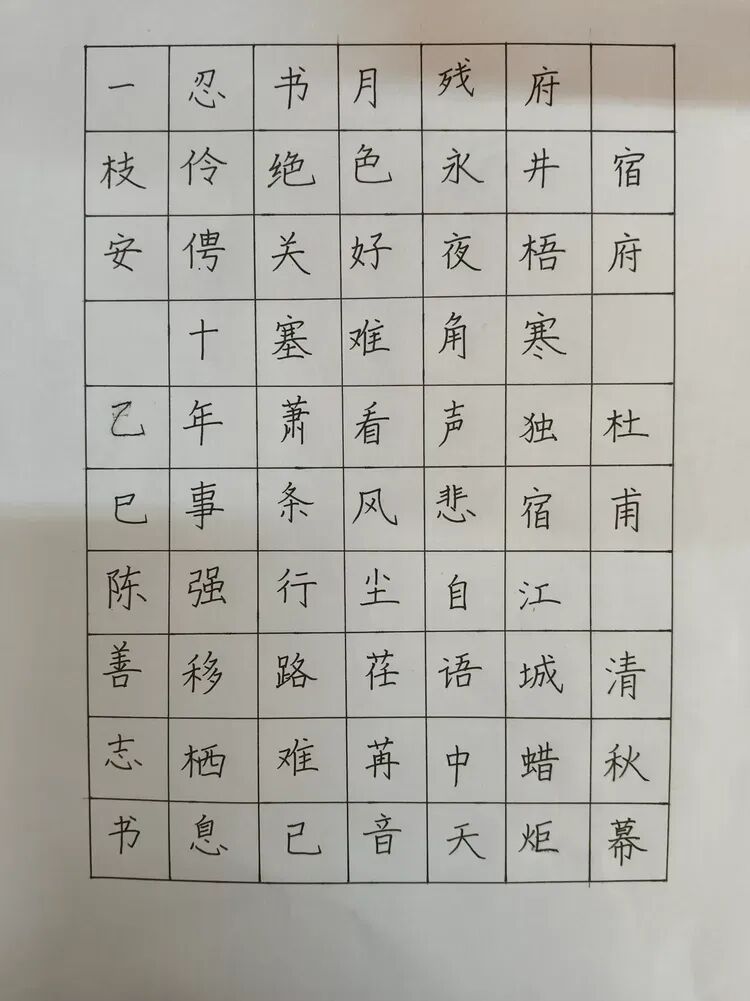 宿府 杜甫 清秋幕
府井梧寒独宿江城蜡炬
残永夜角声悲自语中天
月色好难看风尘荏苒音
书绝关塞萧条行路难已
忍伶俜十年事强移栖息
一枝安 己巳陈善志书